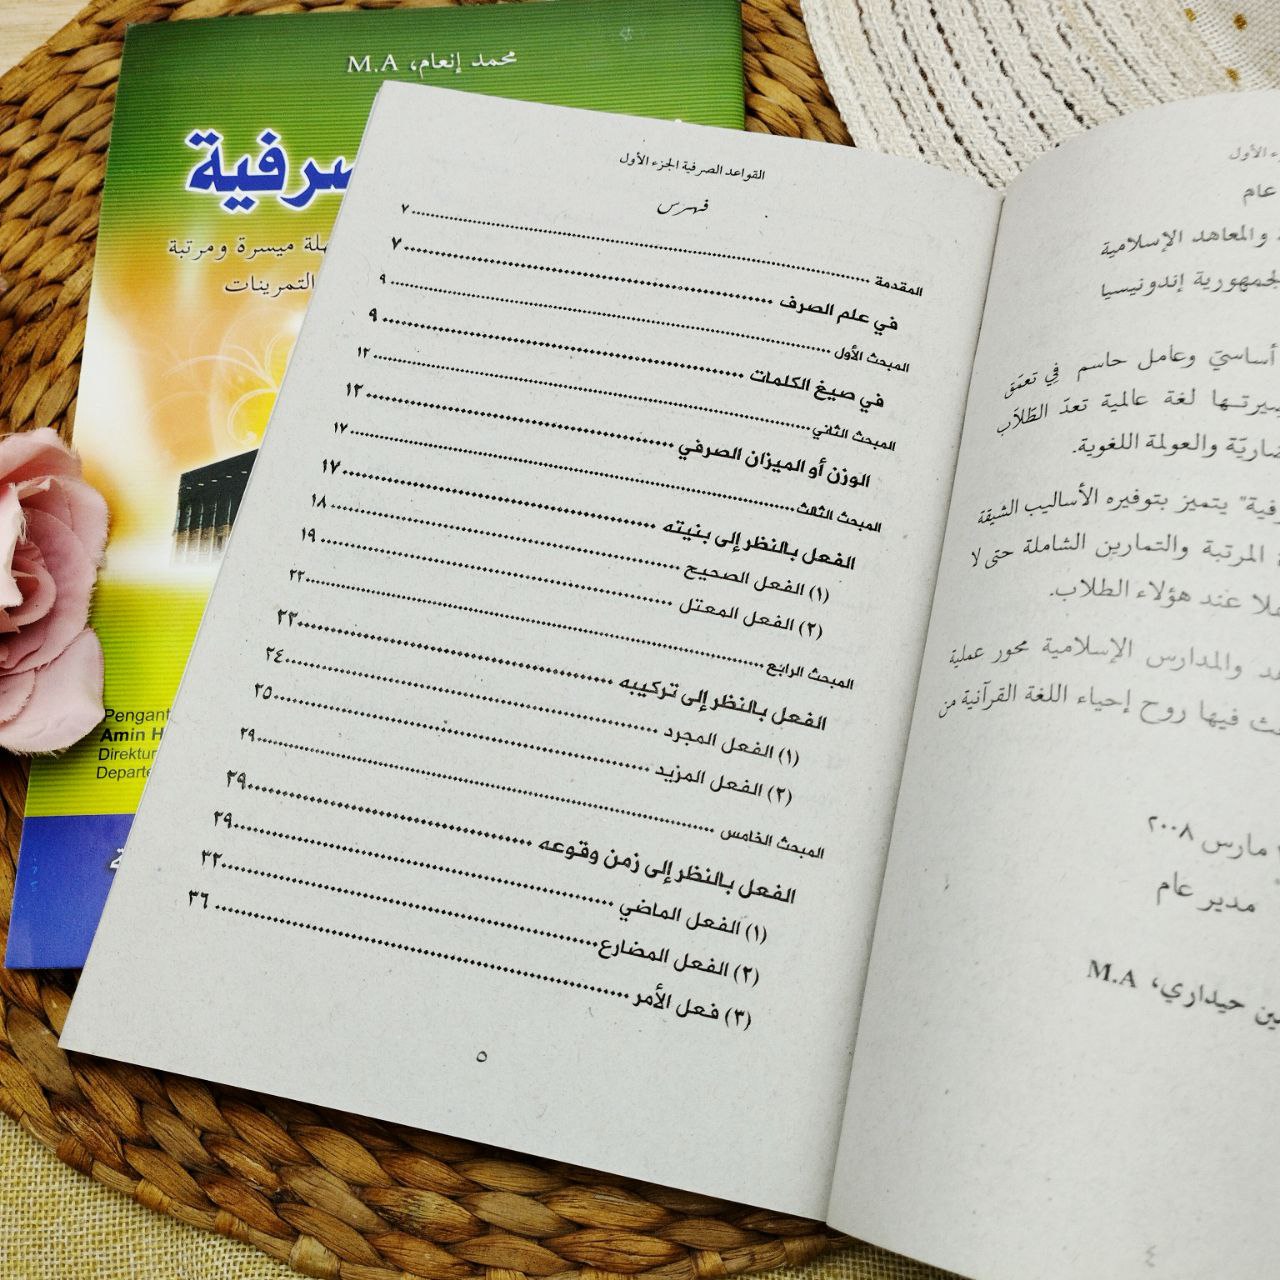 محمد إنعام، M.A
صرفية
سهلة ميسرة ومرتبة
التمرينات
Amin H
Direktur
القواعد الصرفية الجزء الأول
فهرس
المقدمة ........ ٧
في علم الصرف ........ ٧
المبحث الأول ........ ٩
في صيغ الكلمات ........ ٩
المبحث الثاني ........ ١٢
الوزن أو الميزان الصرفي ........ ١٢
المبحث الثالث ........ ١٧
الفعل بالنظر إلى بنيته ........ ١٧
(١) الفعل الصحيح ........ ١٨
(٢) الفعل المعتل ........ ١٩
المبحث الرابع ........ ٢٢
الفعل بالنظر إلى تركيبه ........ ٢٢
(١) الفعل المجرد ........ ٢٤
(٢) الفعل المزيد ........ ٢٥
المبحث الخامس ........ ٢٩
الفعل بالنظر إلى زمن وقوعه ........ ٢٩
(١) الفعل الماضي ........ ٢٩
(٢) الفعل المضارع ........ ٣٢
(٣) فعل الأمر ........ ٣٦
٥
الأول
عام
والمعاهد الإسلامية
لجمهورية إندونيسيا
أساسيّ وعامل حاسم في تعمّق
لغة عالمية تعدّ الطّلاّب
والعولمة اللغوية.
يتميز بتوفيره الأساليب الشيقة
المرتبة والتمارين الشاملة حتى لا
عند هؤلاء الطلاب.
والمدارس الإسلامية محور عملية
فيها روح إحياء اللغة القرآنية من
مارس ٢٠٠٨
مدير عام
حيداري، M.A
٤